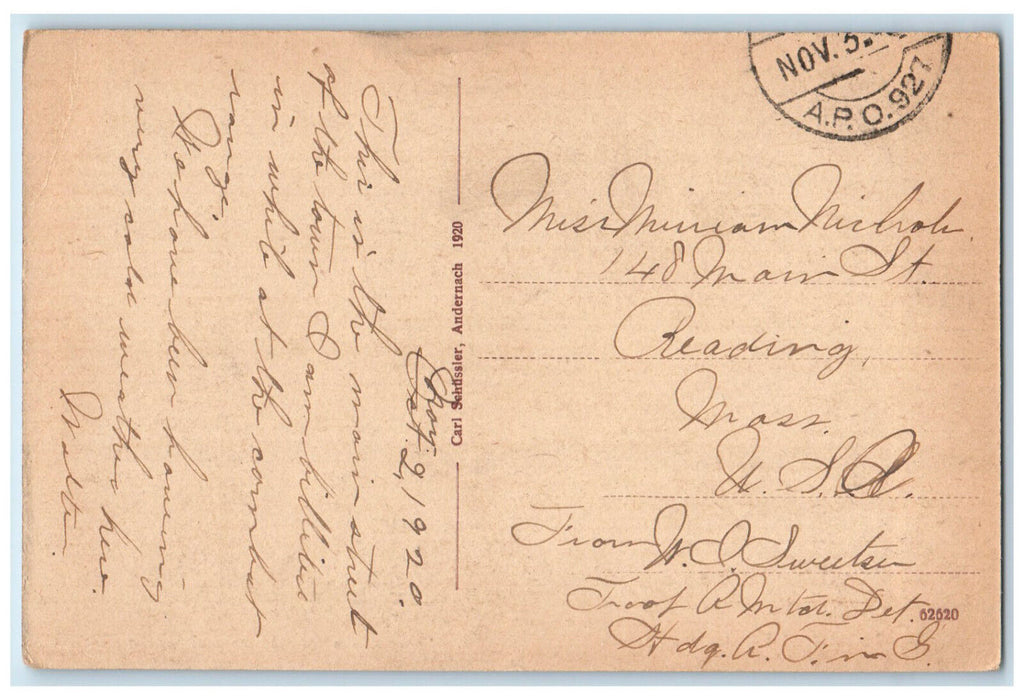 Nov.
Oct. 2, 1920.
This is the main street
of the town I am billited
in while at the combat
range.
We have been having
very cold weather here.
Walter
Carl Schüssler, Andernach 1920
NOV. 5.
A.P.O. 927
Miss Miriam Nichols
148 Main St.
Reading,
Mass.
U.S.A.
From W. S. Sweetser
Troop A Mtd. Det.
Hdq. A. F. in G.
62620